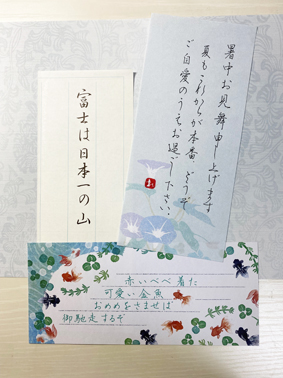 暑中お見舞申し上げます
夏もこれからが本番、どうぞ
ご自愛のうえお過ごし下さい。
お
富士は日本一の山
赤いべべ着た
可愛い金魚
おめめをさませば
御馳走するぞ